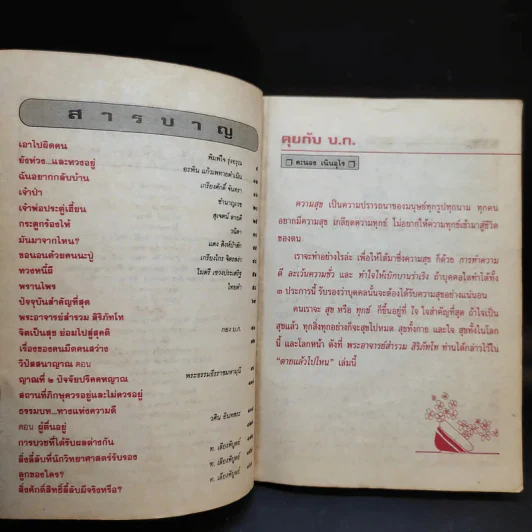 สารบาญ
เอาไปผิดคน
ยังห่วง...และหวงอยู่
ฉันอยากกลับบ้าน
เจ้าป่า
เจ้าพ่อประตูเฮี้ยน
กระดูกร้องไห้
มันมาจากไหน?
ขอนอนด้วยคนนะปู่
ทวงหนี้ผี
พรานโพง
ปัจจุบันสำคัญที่สุด
พระอาจารย์สำรวม สิริภัทโท
จิตเป็นสุข ย่อมไปสู่สุคติ
เรื่องของคนมืดคนสว่าง
วิปัสสนาญาณ ตอน
ญาณที่ ๒ ปัจจัยปริคคหญาณ
สถานที่ภิกษุควรอยู่และไม่ควรอยู่
ธรรมบท...ทางแห่งความดี
ตอน ผู้ตื่นอยู่
การบวชที่ได้รับผลต่างกัน
สิ่งลี้ลับที่นักวิทยาศาสตร์รับรอง
ลูกของใคร?
สิ่งศักดิ์สิทธิ์ลี้ลับมีจริงหรือ?
เกรียงศักดิ์ จันทยา
ชำนาญเวช
วนิดา
ไทยดำ
กอง บ.ก.
พระธรรมธีรราชมหามุนี
วศิน อินทสระ
ท. เลียงพิบูลย์
ท. เลียงพิบูลย์
ท. เลียงพิบูลย์
คุยกับ บ.ก.
คะนอง เนินอุไร
ความสุข เป็นความปรารถนาของมนุษย์ทุกรูปทุกนาม ทุกคน
อยากมีความสุข เกลียดความทุกข์ ไม่อยากให้ความทุกข์เข้ามาสู่ชีวิต
ของตน
เราจะทำอย่างไรล่ะ เพื่อให้ได้มาซึ่งความสุข ก็ด้วย การทำความ
ดี ละเว้นความชั่ว และ ทำใจให้เบิกบานร่าเริง ถ้าบุคคลใดทำได้ทั้ง
๓ ประการนี้ รับรองว่าบุคคลนั้นจะต้องได้รับความสุขอย่างแน่นอน
คนเราจะ สุข หรือ ทุกข์ ก็ขึ้นอยู่ที่ ใจ ใจสำคัญที่สุด ถ้าใจเป็น
สุขแล้ว ทุกสิ่งทุกอย่างก็จะสุขไปหมด สุขทั้งกาย และใจ สุขทั้งในโลก
นี้ และโลกหน้า ดังที่ พระอาจารย์สำรวม สิริภัทโท ท่านได้กล่าวไว้ใน
“ตายแล้วไปไหน” เล่มนี้